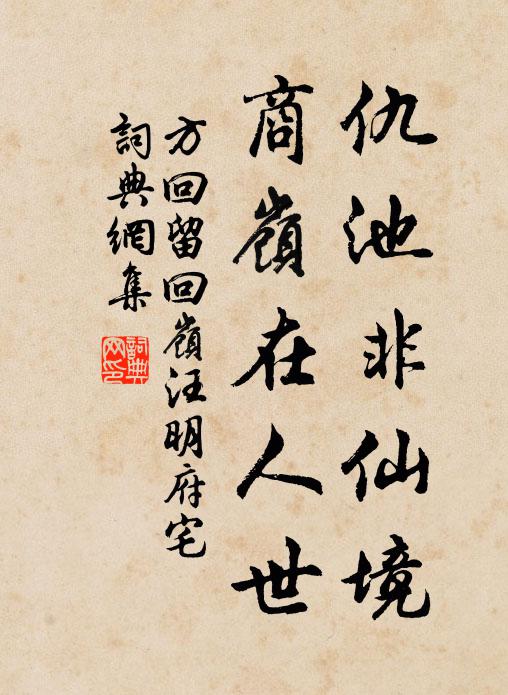 仇池非仙境
商嶺在人世
方回留回嶺汪明府宅
詞典網集
詞典網印